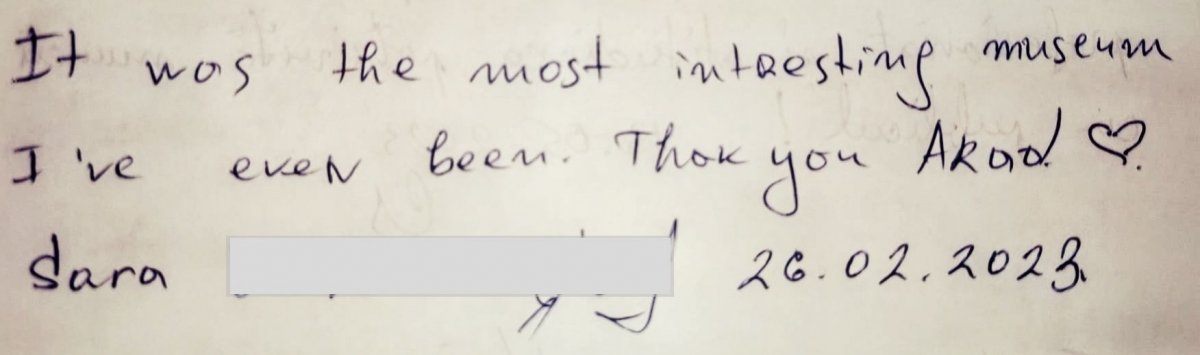 It was the most intresting museum
I've even been. Thak you Arad! ♡.
Sara
26.02.2023.